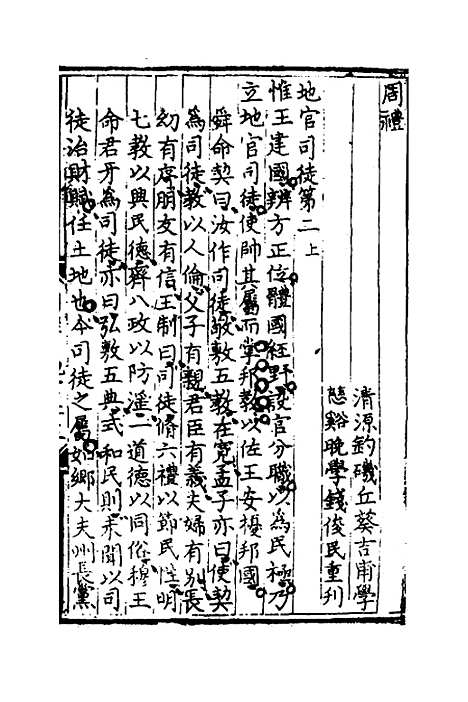 周禮
清源釣磯丘葵吉甫學
慈谿晚學錢俊民重刋
地官司徒第二上
惟王建國辨方正位體國經野設官分職以為民極乃
立地官司徒使帥其屬而掌邦教以佐王安擾邦國
舜命契曰汝作司徒敬敷五教在寬孟子亦曰使契
為司徒教以人倫父子有親君臣有義夫婦有别長
幼有序朋友有信王制曰司徒脩六禮以節民性明
七教以興民德齊八政以防淫一道德以同俗穆王
命君牙為司徒亦曰弘敷五典式和民則未聞以司
徒治財賦任土地也今司徒之屬如鄉大夫州長黨